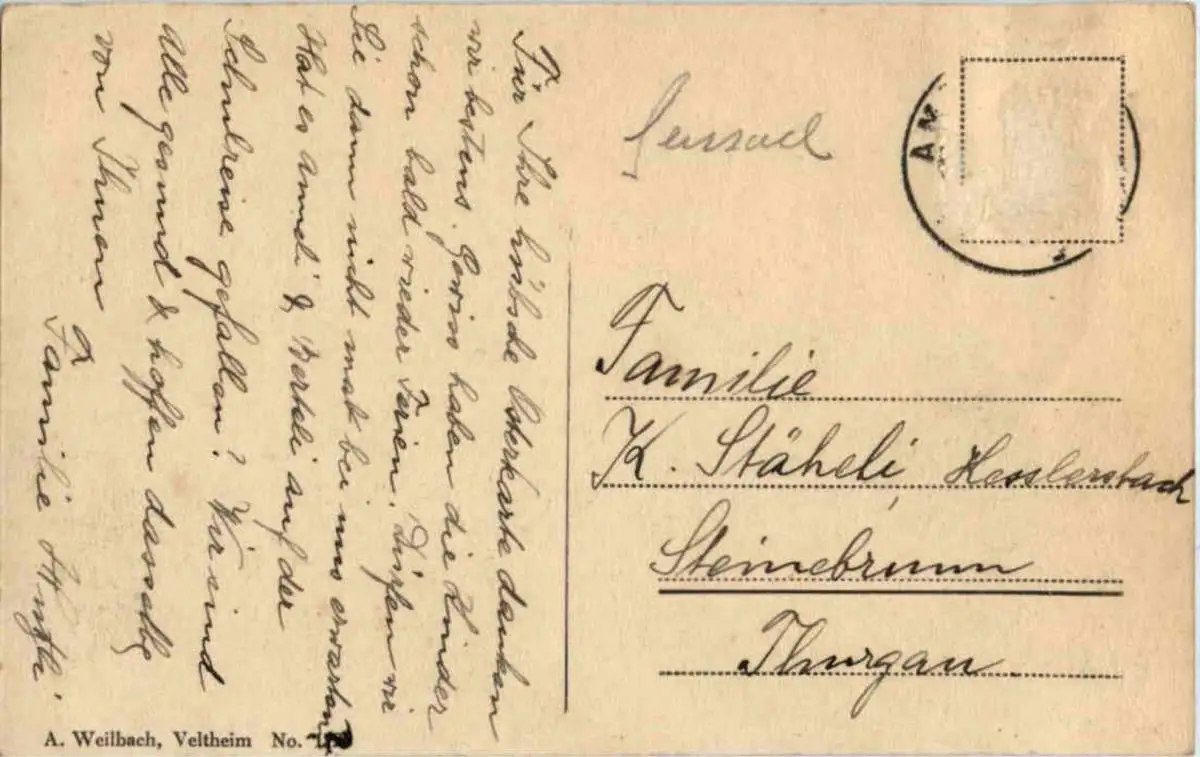 Für Ihre hübsche Osterkarte danken
wir bestens. Gewiss haben die Kinder
schon bald wieder Ferien. Dürfen wir
Sie dann nicht mal bei uns erwarten?
Hat es Anneli & Berteli auf der
Schulreise gefallen? Wir sind
alle gesund & hoffen dasselbe
von Ihnen
Familie
AM
Familie
K. Stäheli, Hesslersbach
Steinebrunn
Thurgau
A. Weilbach, Veltheim No.